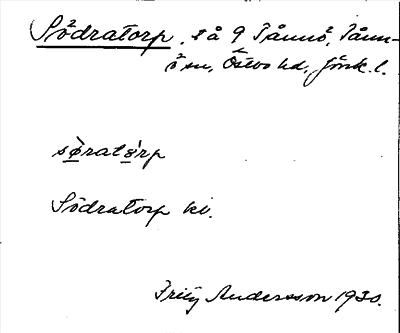 Södratorp, så 9 Tånnö, Tånn-
ö sn, Östbo hd, Jönk. l.
sø̀ratò̤rp
Södratorp kv.
Fritz Andersson 1930.